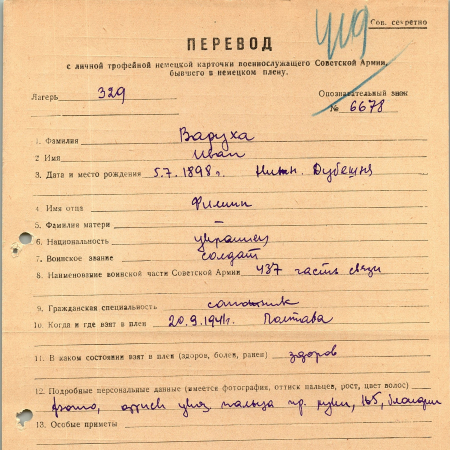 419
Сов. секретно
ПЕРЕВОД
с личной трофейной немецкой карточки военнослужащего Советской Армии,
бывшего в немецком плену.
Лагерь 329
Опознавательный знак
№ 6678
1. Фамилия Варуха
2 Имя Иван
3. Дата и место рождения 5.7.1898г. Нижн. Дубешня
4. Имя отца Филипп
5. Фамилия матери —
6. Национальность украинец
7. Воинское звание солдат
8. Наименование воинской части Советской Армии 437 часть связи
9. Гражданская специальность сапожник
10. Когда и где взят в плен 20.9.1941г. Полтава
11. В каком состоянии взят в плен (здоров, болен, ранен) здоров
12. Подробные персональные данные (имеется фотография, оттиск пальцев, рост, цвет волос)
фото, оттиск указ. пальца пр. руки, 165, блондин
13. Особые приметы